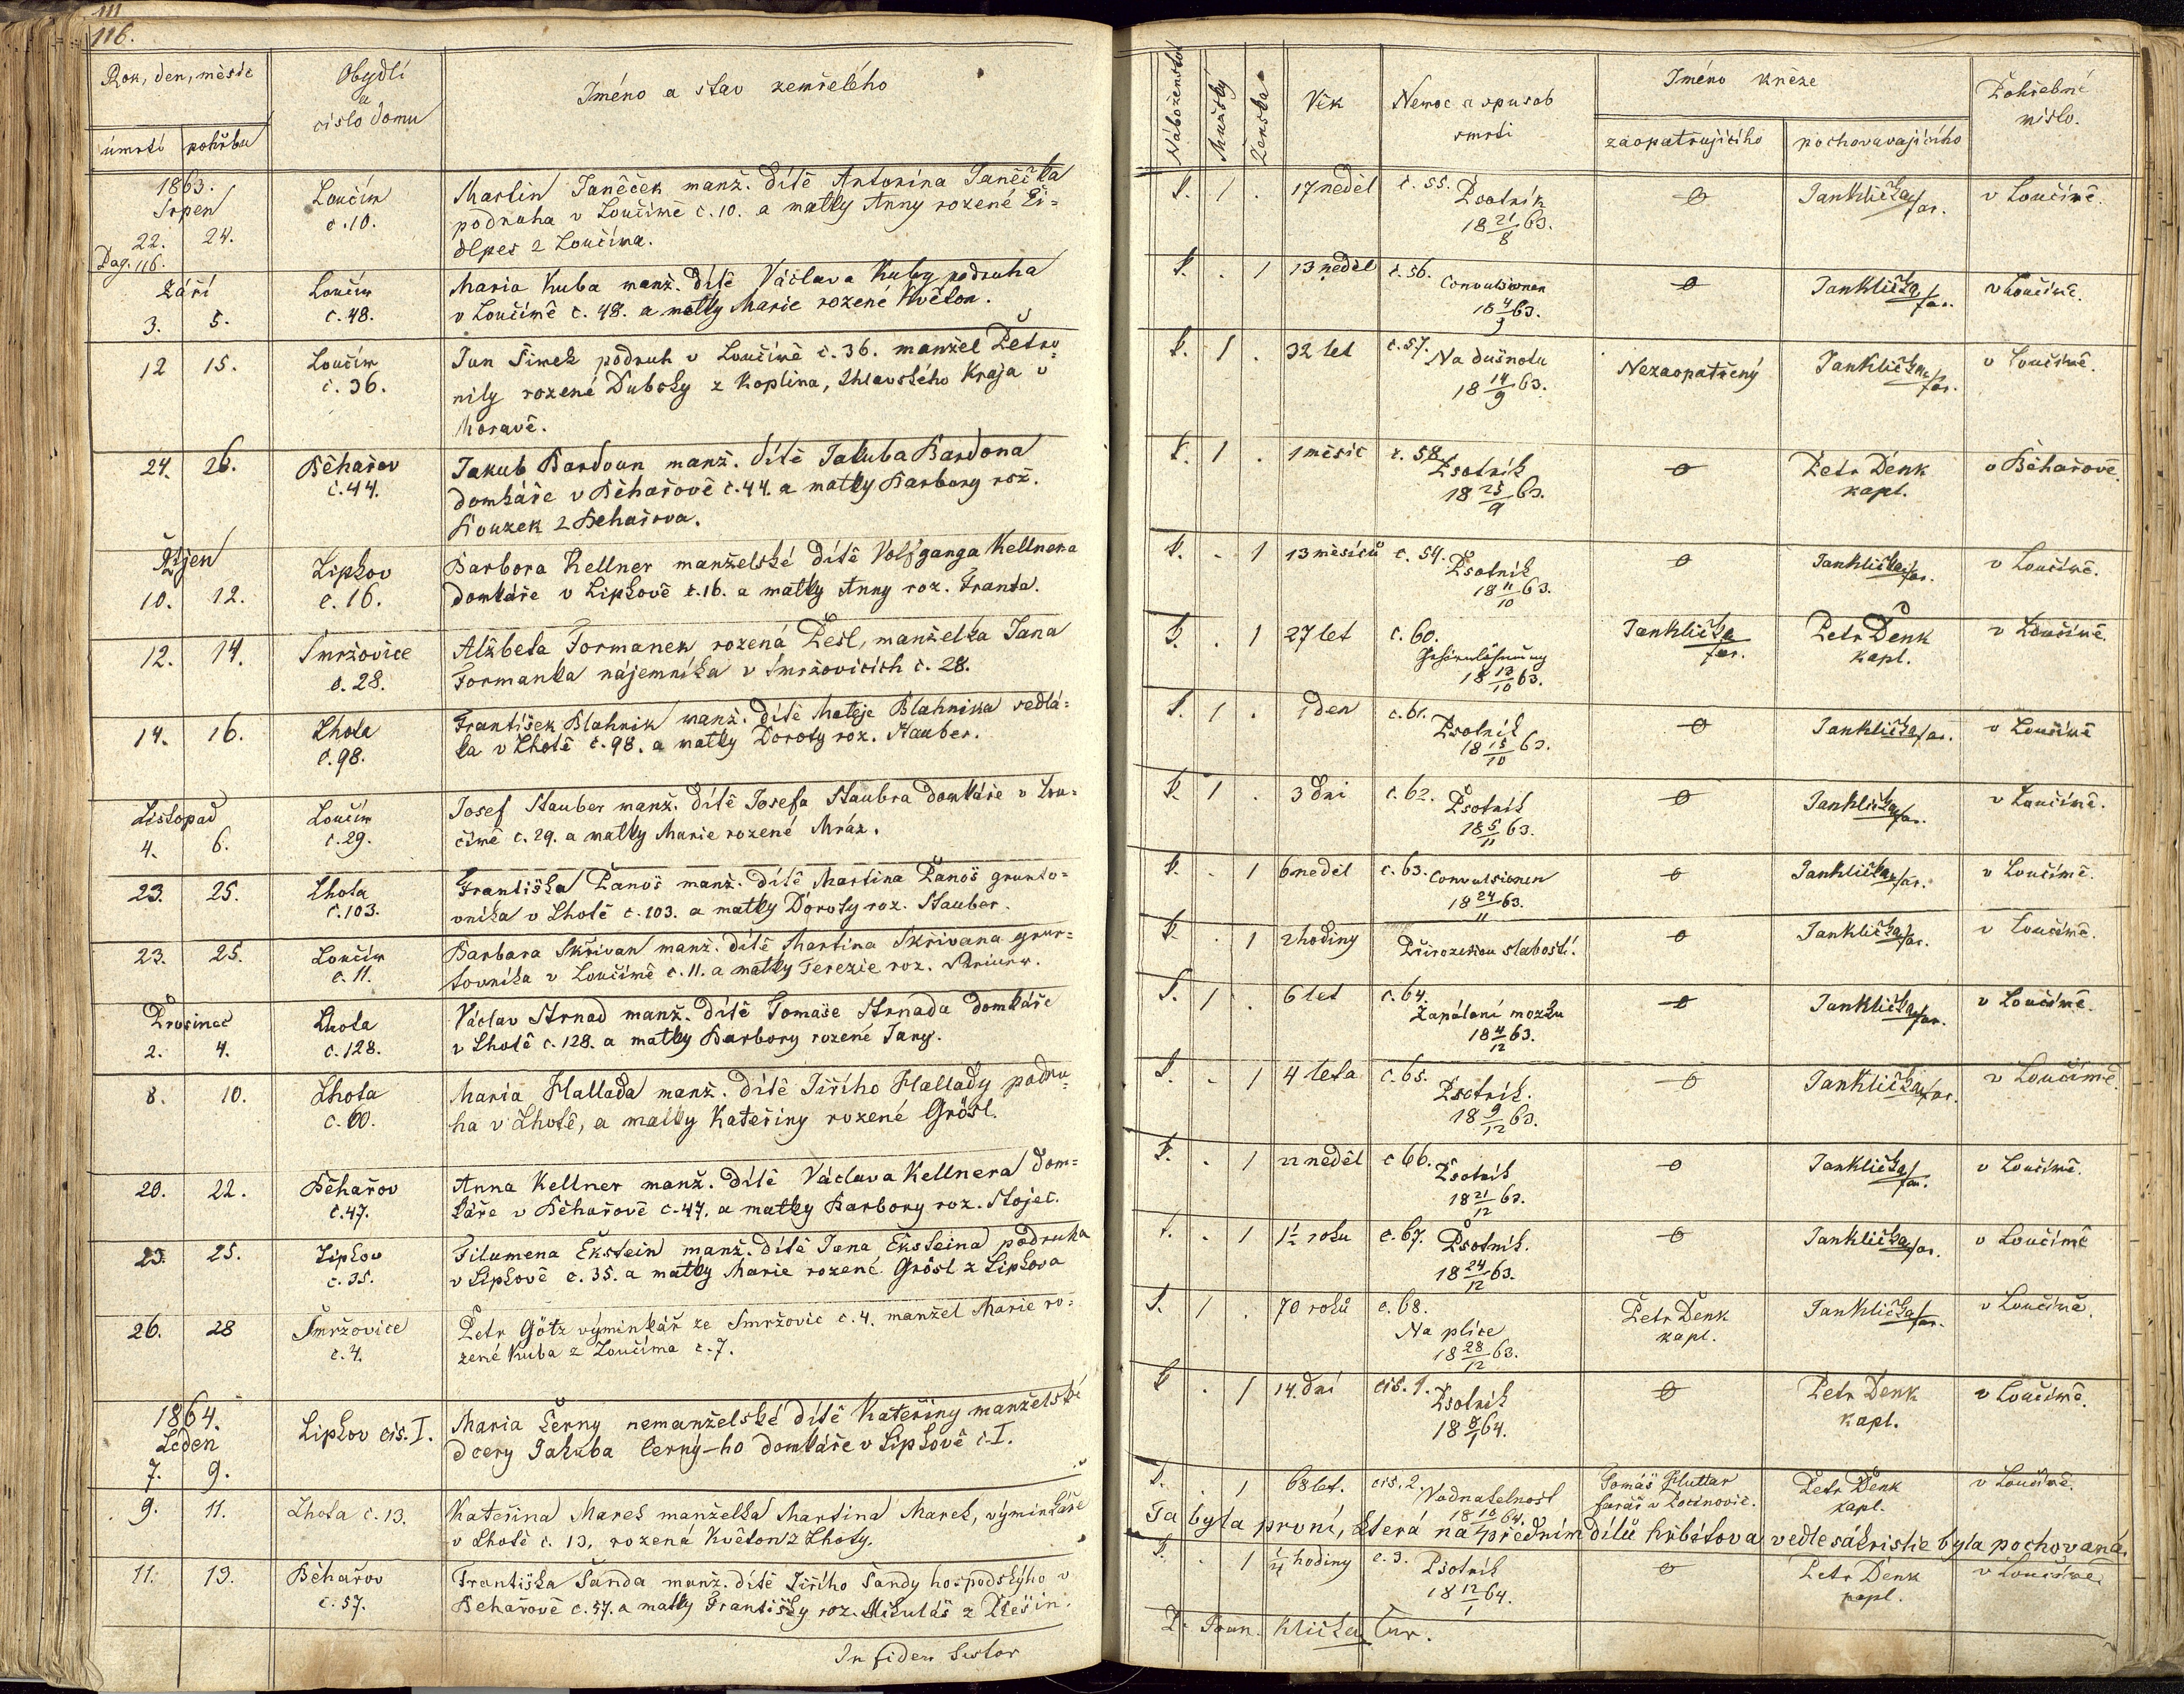 111
116.
Rok, den, měsíc
úmrtí pohřbu
Obydlí
a
číslo domu
Jméno a stav zemřelého
1863.
Srpen
22. 24.
Pag. 116.
Loučim
č. 10.
Martin Janěček manž. dítě Antonína Janěčka
podruha v Loučimě č. 10. a matky Anny rozené
z Loučima.
Září
3. 5.
Loučim
č. 48.
Maria Kuba manž. dítě Václava Kuby podruha
v Loučimě č. 48. a matky Marie rozené Květon.
12 15.
Loučim
č. 36.
Jan Šimek podruh v Loučimě č. 36. manžel Petro=
nily rozené Dubsky z Koplina, Jhlavského Kraja v
Moravě.
24. 26.
Běhařov
č. 44.
Jakub Bardoun manž. dítě Jakuba Bardona
domkáře v Běhařově č. 44. a matky Barbory rož.
Kouzek z Behařova.
Říjen
10. 12.
Lipkov
č. 16.
Barbora Kellner manželské dítě Volfganga Kellnera
domkáře v Lipkově č. 16. a matky Anny roz. Franta.
12. 14.
Smržovice
č. 28.
Alžběta Formanek rozená Pešl, manželka Jana
Formanka nájemníka v Smržovicích č. 28.
14. 16.
Lhota
č. 98.
František Blahnik manž. dítě Matěje Blahnika sedlá=
ka v Lhotě č. 98. a matky Doroty roz. Stauber.
Listopad
4. 6.
Loučim
č. 29.
Josef Stauber manž. dítě Josefa Staubra domkáře v Lou=
čimě č. 29. a matky Marie rozené Mráz.
23. 25.
Lhota
č. 103.
Františka Panoš manž. dítě Martina Panoš grunto=
vníka v Lhotě č. 103. a matky Doroty roz. Stauber.
23. 25.
Loučim
č. 11.
Barbara Skřivan manž. dítě Martina Skřivana grun=
tovníka v Loučimě č. 11. a matky Terezie roz.
Prosinec
2. 4.
Lhota
č. 128.
Václav Strnad manž. dítě Tomaše Strnada domkáře
v Lhotě č. 128. a matky Barbory rozené Jany.
8. 10.
Lhota
č. 60.
Maria Hallada manž. dítě Jiřího Hallady podru=
ha v Lhotě, a matky Kateřiny rozené Grösl.
20. 22.
Běhařov
č. 47.
Anna Kellner manž. dítě Václava Kellnera dom=
káře v Běhařově č. 47. a matky Barbory roz. Stojec.
23. 25.
Lipkov
č. 35.
Filumena Ekstein manž. dítě Jana Eksteina podruha
v Lipkově č. 35. a matky Marie rozené Grösl z Lipkova
26. 28
Smržovice
č. 4.
Petr Götz výminkář ze Smržovic č. 4. manžel Marie ro=
zené Kuba z Loučima č. 7.
1864.
Leden
7. 9.
Lipkov čis. I.
Maria Černy nemanželské dítě Kateřiny manželské
dcery Jakuba Černý-ho domkáře v Lipkově č. I.
9. 11.
Lhota č. 13.
Kateřina Mareš manželka Martina Mareš, výminkáře
v Lhotě č. 13. rozená Květon z Lhoty.
11. 13.
Běhařov
č. 57.
Františka Šanda manž. dítě Jiřího Šandy hospodskýho v
Behařově č. 57. a matky Františky roz. Mikuláš z Pléšin.
In fidem
Náboženství
Mužský
Ženská
Věk
Nemoc a spusob
smrti
Jméno kněze
zaopatřujícího pochovávajícího
Pohřební
místo.
1 . 17 neděl č. 55. Psotník
18 21/8 63.
Jan Klička far. v Loučimě.
. 1 13 neděl č. 56. Convulsionen
18 4/9 63.
Jan Klička far. v Loučimě.
1 . 32 let č. 57. Na dušnotu
18 14/9 63.
Nezaopatřený Jan Klička far. v Loučimě.
1 . 1 měsíc č. 58 Psotník
18 25/9 63.
Petr Denk
kapl.
v Běhařově.
. 1 13 měsíců č. 59. Psotník
18 11/10 63.
Jan Klička far. v Loučimě.
. 1 27 let č. 60.
18 13/10 63.
Jan Klička
far.
Petr Denk
kapl.
v Loučimě.
1 . 1 den č. 61. Psotník
18 15/10 63.
Jan Klička far. v Loučimě
1 . 3 dni č. 62. Psotník
18 5/11 63.
Jan Klička far. v Loučimě.
. 1 6 neděl č. 63. Convulsionen
18 24/11 63.
Jan Klička far. v Loučimě.
. 1 2 hodiny Přirozenou slabostí.
Jan Klička far. v Loučimě.
1 . 6 let č. 64.
Zapálení mozku
18 4/12 63.
Jan Klička far. v Loučimě.
. 1 4 leta č. 65.
Psotník.
18 9/12 63.
Jan Klička far. v Loučimě.
. 1 22 neděl č 66. Psotník
18 21/12 63.
Jan Klička far. v Loučimě.
. 1 1½ roku č. 67. Psotník.
18 24/12 63.
Jan Klička far. v Loučimě
1 . 70 roků č. 68.
Na plíce
18 28/12 63.
Petr Denk
kapl.
Jan Klička far. v Loučimě.
. 1 14. dní čis. 1. Psotník
18 8/1 64.
Petr Denk
kapl.
v Loučimě.
. 1 68 let. čis. 2. Vodnatelnost
18 10/1 64.
Tomáš Huttar
farář v
Petr Denk
kapl.
v Loučimě.
Ta byla první, která na předním dílů hřbitova vedle sákristie byla pochovaná.
. 1 ¼ hodiny č. 3. Psotník
18 12/1 64.
Petr Denk
kapl.
v Loučimě.
Klička